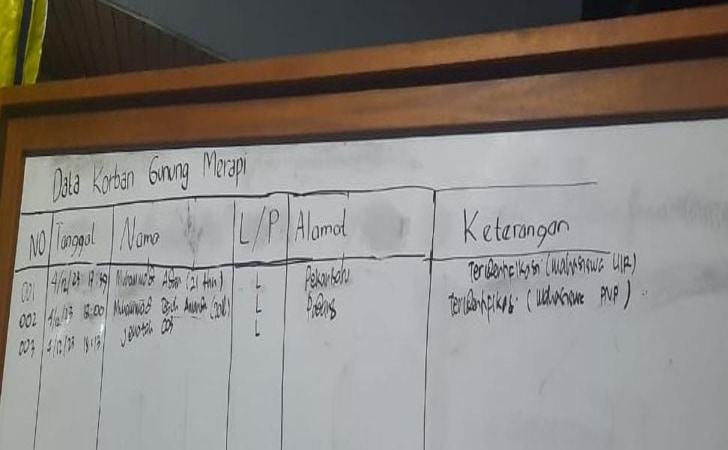 Data Korban Gunung Merapi
NO Tanggal Nama L/P Alamat Keterangan
001 4/12/23 (21 thn) L Pekanbaru Teridentifikasi (mahasiswa UIR)
002 4/12/23 18:00 Muhammad L Padang Teridentifikasi (mahasiswa PNP)
003 4/12/23 18:13 Jenazah 003 L